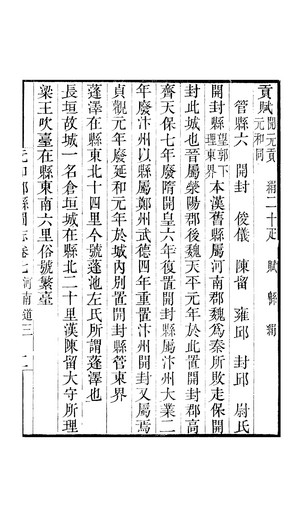 貢賦開元貢絹二十疋 賦縣絹
元和同
管縣六 開封 俊儀 陳留 雍邱 封邱 尉氏
開封縣望郭下
理東界本漢舊縣屬河南郡魏為秦所敗走保開
封此城也晉屬滎陽郡後魏天平元年於此置開封郡高
齊天保七年廢隋開皇六年復置開封縣屬汴州大業二
年廢汴州以縣屬鄭州武德四年重置汴州開封又屬焉
貞觀元年廢延和元年於城內別置開封縣管東界
蓬澤在縣東北十四里今號蓬池左氏所謂蓬澤也
長垣故城一名倉垣城在縣北二十里漢陳留大守所理
梁王吹臺在縣東南六里俗號繁臺
元和郡縣圖志卷七河南道三 二